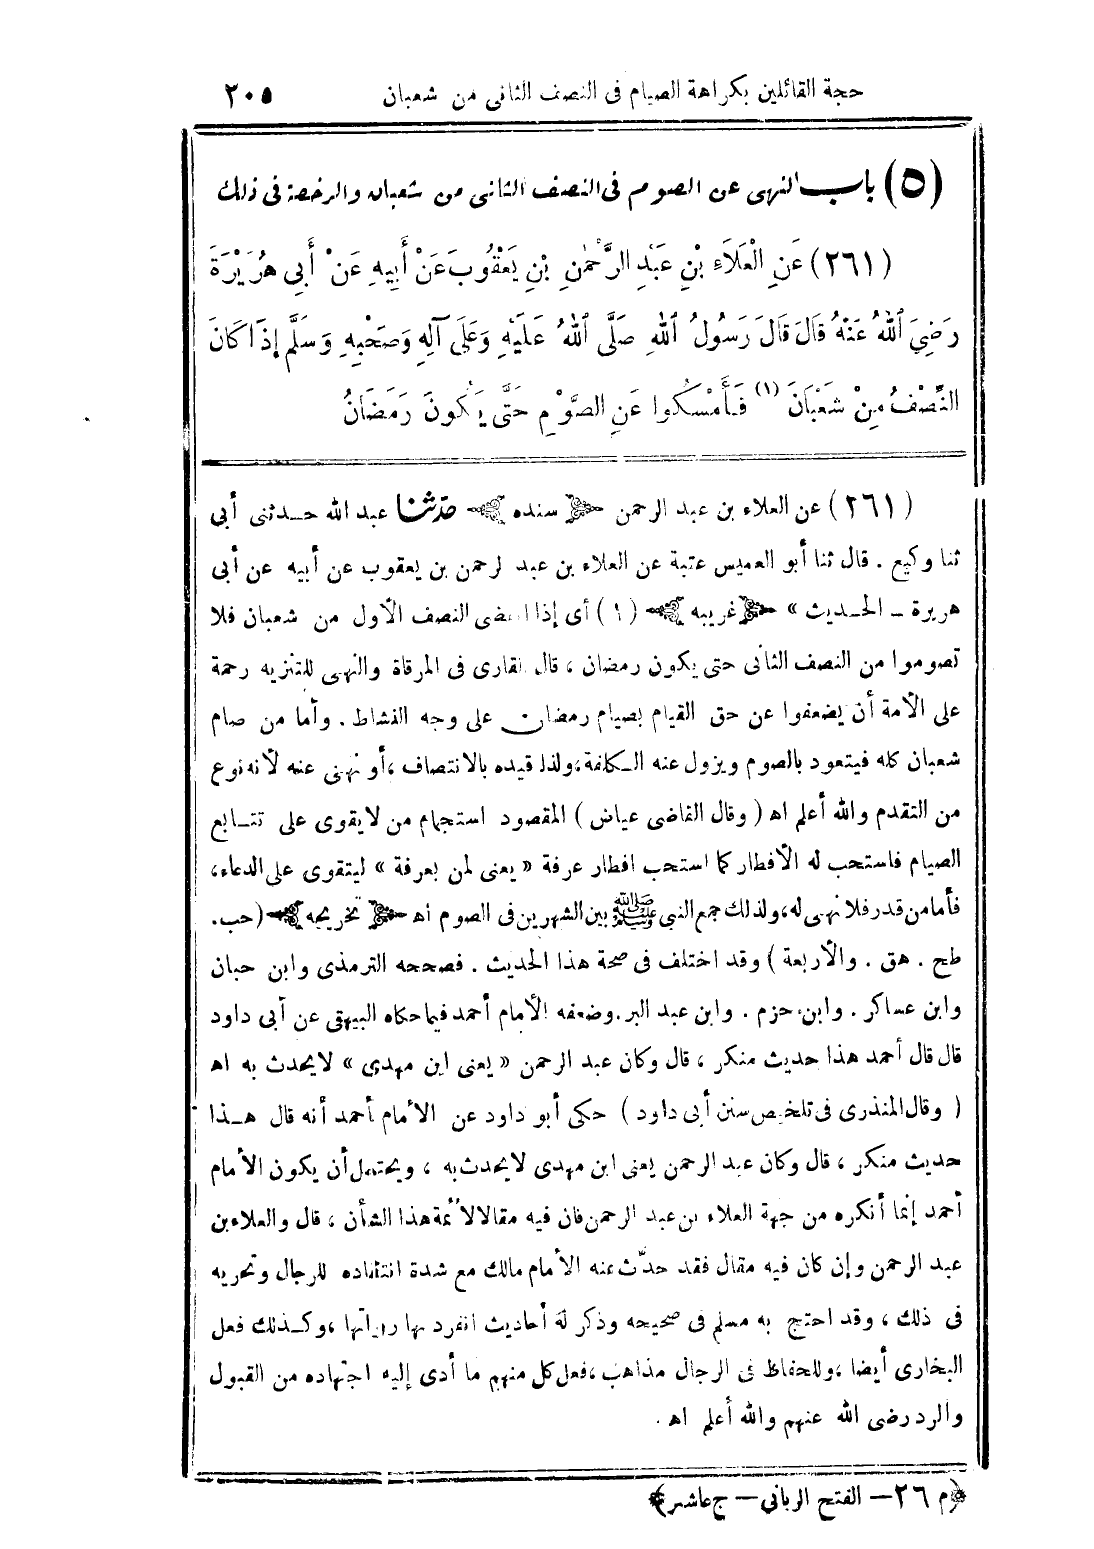 حجة القائلين بكراهة الصيام فى النصف الثانى من شعبان ٢٠٥
(٥) باب النهى عن الصوم فى النصف الثانى من شعبان والرخصة فى ذلك
(٢٦١) عَنِ الْعَلَاءِ بْنِ عَبْدِ الرَّحْمٰنِ بْنِ يَعْقُوبَ عَنْ أَبِيهِ عَنْ أَبِي هُرَيْرَةَ
رَضِيَ اللهُ عَنْهُ قَالَ قَالَ رَسُولُ اللهِ صَلَّى اللهُ عَلَيْهِ وَعَلَى آلِهِ وَصَحْبِهِ وَسَلَّم إِذَا كَانَ
النِّصْفُ مِنْ شَعْبَانَ (١) فَأَمْسِكُوا عَنِ الصَّوْمِ حَتَّى يَكُونَ رَمَضَانُ
(٢٦١) عن العلاء بن عبد الرحمن ﴿ سنده ﴾ حدثنا عبد الله حـدثنى أبى
ثنا وكيع . قال ثنا أبو العميس عتبة عن العلاء بن عبد لرحمن بن يعقوب عن أبيه عن أبى
هريرة ــ الحـديث » ﴿ غريبه ﴾ (١) أى إذا انقضى النصف الأول من شعبان فلا
تصوموا من النصف الثانى حتى يكون رمضان ، قال القارى فى المرقاة والنهى للتنزيه رحمة
على الأمة أن يضعفوا عن حق القيام بصيام رمضان على وجه النشاط . وأما من صام
شعبان كله فيتعود بالصوم ويزول عنه الـكلفة ،ولذا قيده بالانتصاف ،أو نهى عنه لأنه نوع
من التقدم والله أعلم اه ( وقال القاضى عياض ) المقصود استجمام من لا يقوى على تتـابع
الصيام فاستحب له الأفطار كما استحب افطار عرفة « يعنى لمن بعرفة » ليتقوى على الدعاء،
فأما من قدر فلا نهى له،ولذلك جمع النبى ﷺ بين الشهرين فى الصوم اه ﴿ تخريجه ﴾ (حب.
طح . هق . والأربعة ) وقد اختلف فى صحة هذا الحديث . فصححه الترمذى وابن حبان
وابن عساكر . وابن حزم . وابن عبد البر.وضعفه الأمام أحمد فيما حكاه البيهقى عن أبى داود
قال قال أحمد هذا حديث منكر ، قال وكان عبد الرحمن « يعنى ابن مهدى » لا يحدث به اه
( وقال المنذرى فى تلخيص سنن أبى داود ) حكى أبو داود عن الأمام أحمد أنه قال هـذا
حديث منكر ، قال وكان عبد الرحمن يعنى ابن مهدى لا يحدث به ، ويحتمل أن يكون الأمام
أحمد إنما أنكره من جهة العلاء بن عبد الرحمن فان فيه مقالا لأئمة هذا الشأن ، قال والعلاء بن
عبد الرحمن وإن كان فيه مقال فقد حدّث عنه الأمام مالك مع شدة انتقاده للرجال وتحريه
فى ذلك ، وقد احتج به مسلم فى صحيحه وذكر له أحاديث انفرد بها رواتها ،وكـذلك فعل
البخارى أيضا ،وللحفاظ فى الرجال مذاهب ،فعل كل منهم ما أدى إليه اجتهاده من القبول
والرد رضى الله عنهم والله أعلم اه .
﴿م ٢٦ – الفتح الربانى – ج عاشر﴾